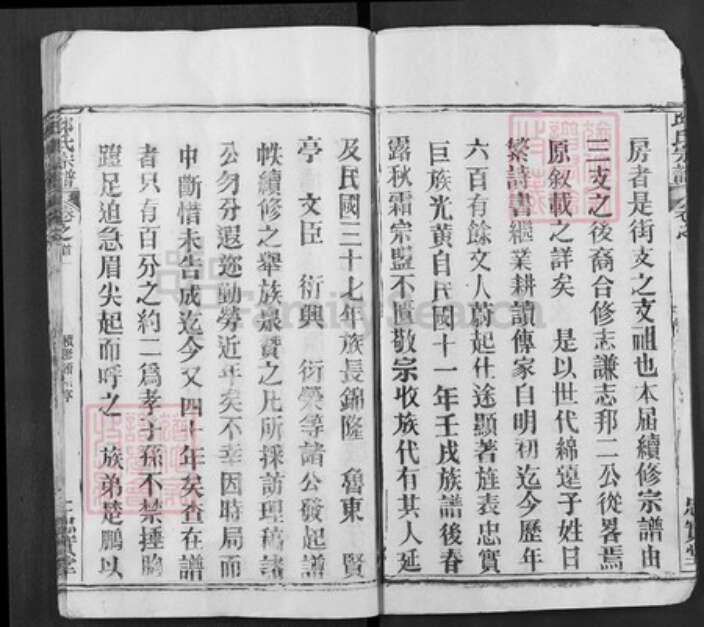 房者是街支之支祖也本屆續修宗譜由
三支之後裔合修志謙志邦二公從畧焉
原敘載之詳矣　是以世代綿遠子姓日
繁詩書繼業耕讀傳家自明初迄今歷年
六百有餘文人蔚起仕途顯著旌表忠實
巨族光黃自民國十一年壬戌族譜後春
露秋霜宗盟不匱敬宗收族代有其人延
忠實堂
及民國三十七年族長錦隆　魯東　賢
亭　文臣　衍興　衍榮等諸公發起譜
帙續修之舉族衆贊之凡所採訪理稿諸
公勿分遐邇勤勞近年矣不幸因時局而
中斷惜未告成迄今又四十年矣查在譜
者只有百分之約二爲孝子孫不禁捶胸
蹬足迫急眉尖起而呼之　族弟楚鵬以
邱氏宗譜　卷之首
FamilySearch